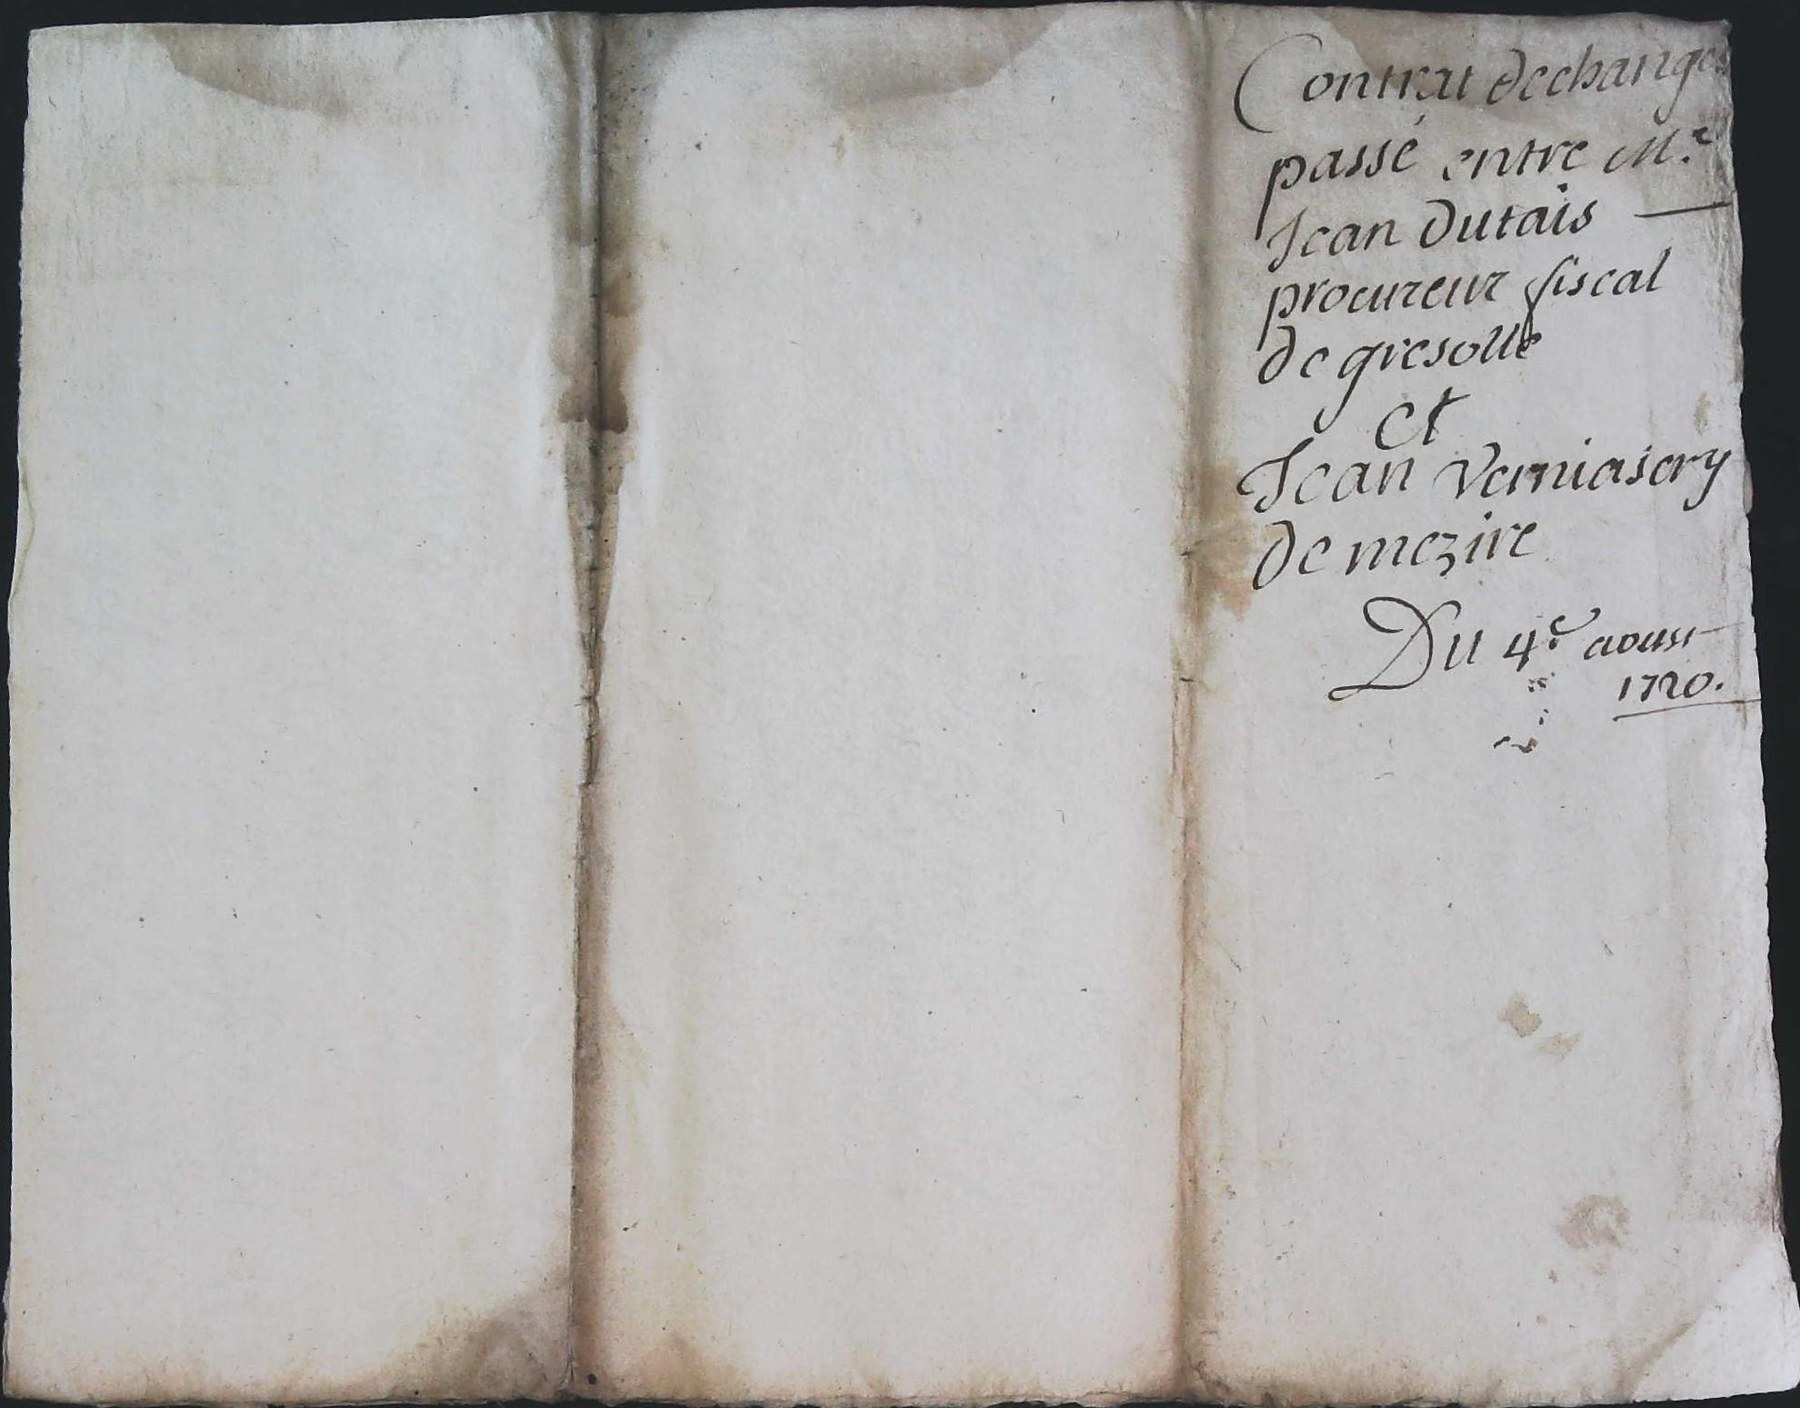 Contrat dechanges
passé entre Me.
Jean Dutais
procureur fiscal
de gresolle
et
Jean Verniasery
de mezire
Du 4e. aoust
1720.